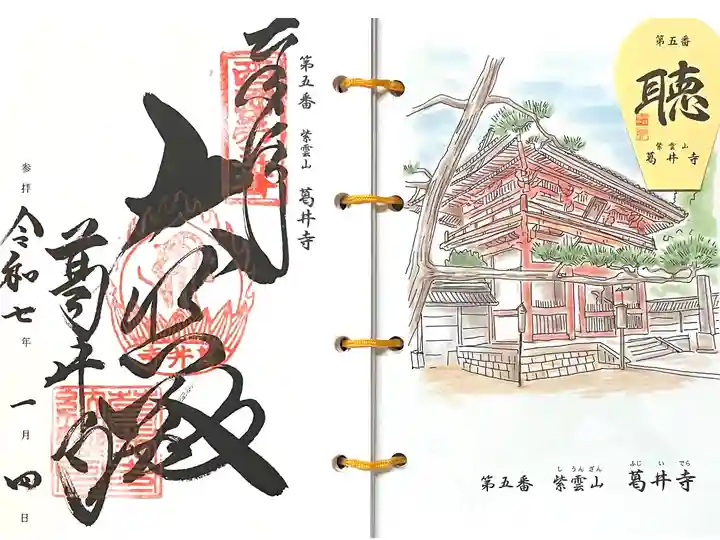 第五番 紫雲山 葛井寺
奉拝
大悲殿
葛井寺
参拝 令和七年 一月四日
第五番
聴
紫雲山
葛井寺
しうんざん ふじいでら
第五番 紫雲山 葛井寺